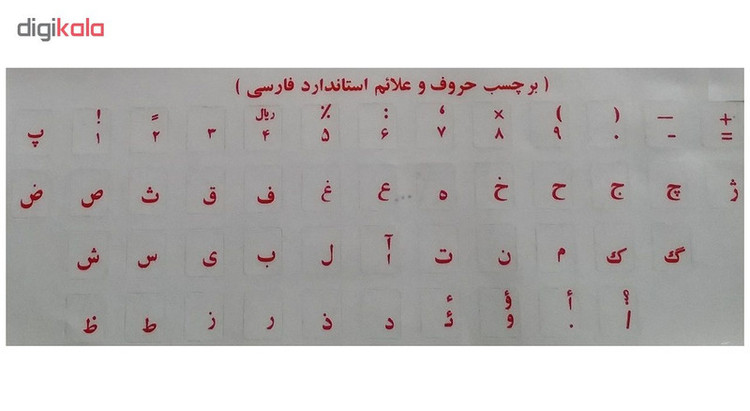 digikala
( برچسب حروف و علائم استاندارد فارسی )
پ ! ۱ ً ۲ ۳ ریال ۴ ٪ ۵ : ۶ ، ۷ × ۸ ( ۹ ) ۰ — - + =
ض ص ث ق ف غ ع ه خ ح ج چ ژ
ش س ی ب ل آ ا ت ن م ک گ
ظ ط ز ر ذ د ء ئ ؤ و أ . ؟ /